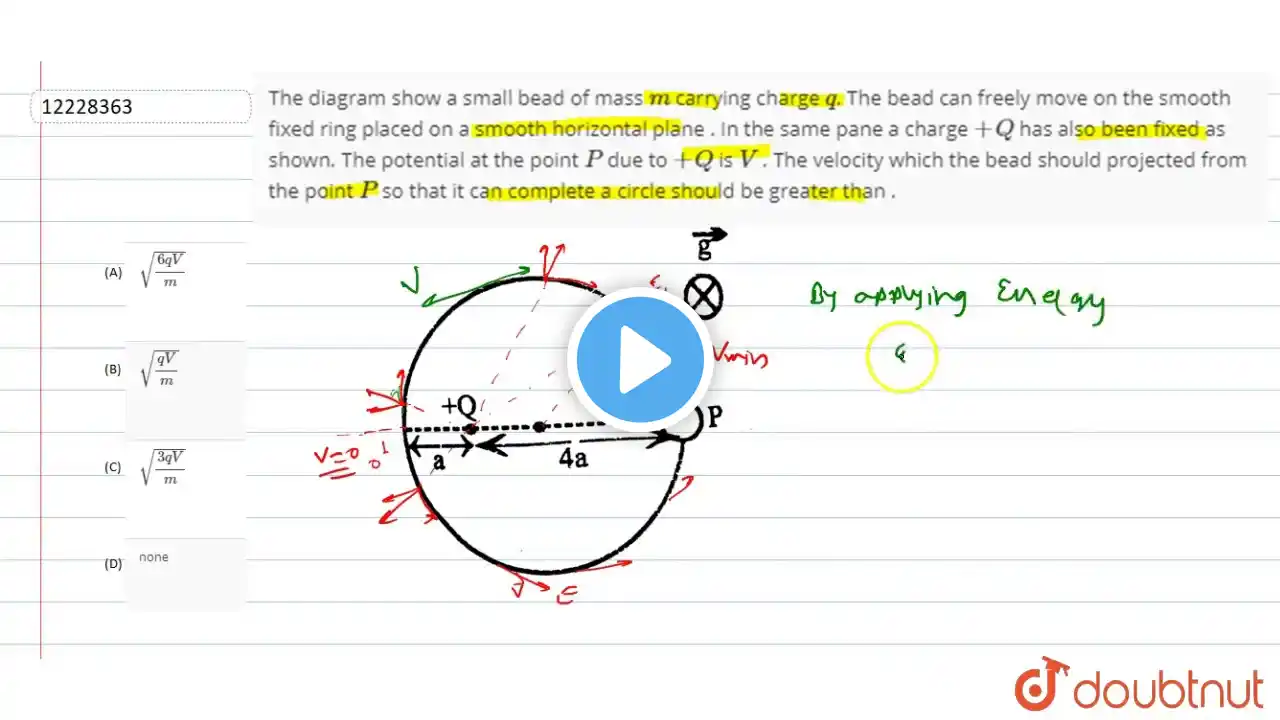 12228363
The diagram show a small bead of mass m carrying charge q. The bead can freely move on the smooth
fixed ring placed on a smooth horizontal plane . In the same pane a charge +Q has also been fixed as
shown. The potential at the point P due to +Q is V . The velocity which the bead should projected from
the point P so that it can complete a circle should be greater than .
(A) √(6qV/m)
(B) √(qV/m)
(C) √(3qV/m)
(D) none
g
By applying Energy
Vmin
+Q
P
a
4a
V=0
E
doubtnut